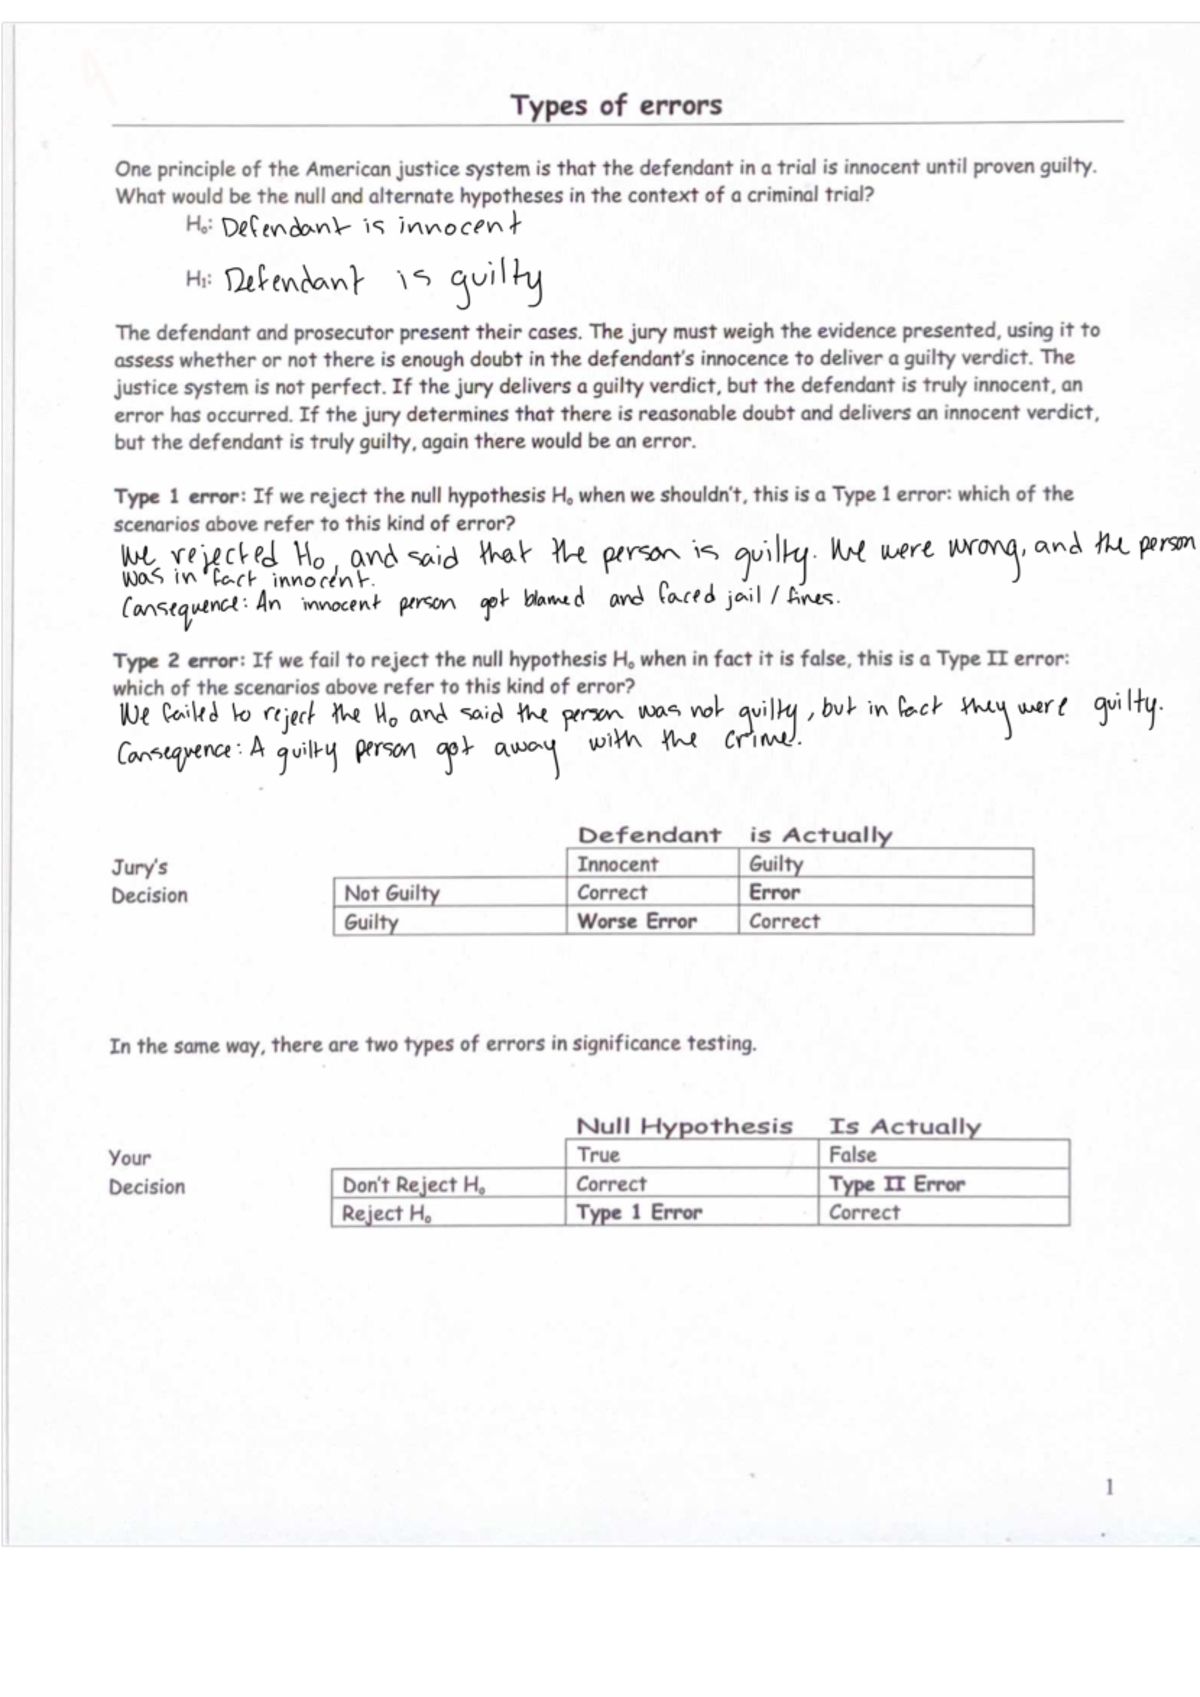 Types of errors
One principle of the American justice system is that the defendant in a trial is innocent until proven guilty.
What would be the null and alternate hypotheses in the context of a criminal trial?
H₀: Defendant is innocent
H₁: Defendant is guilty
The defendant and prosecutor present their cases. The jury must weigh the evidence presented, using it to
assess whether or not there is enough doubt in the defendant's innocence to deliver a guilty verdict. The
justice system is not perfect. If the jury delivers a guilty verdict, but the defendant is truly innocent, an
error has occurred. If the jury determines that there is reasonable doubt and delivers an innocent verdict,
but the defendant is truly guilty, again there would be an error.
Type 1 error: If we reject the null hypothesis H₀ when we shouldn't, this is a Type 1 error: which of the
scenarios above refer to this kind of error?
We rejected H₀, and said that the person is guilty. We were wrong, and the person
was in fact innocent.
Consequence: An innocent person got blamed and faced jail / fines.
Type 2 error: If we fail to reject the null hypothesis H₀ when in fact it is false, this is a Type II error:
which of the scenarios above refer to this kind of error?
We failed to reject the H₀ and said the person was not guilty, but in fact they were guilty.
Consequence: A guilty person got away with the crime.
Defendant is Actually
Jury's Innocent Guilty
Decision Not Guilty Correct Error
Guilty Worse Error Correct
In the same way, there are two types of errors in significance testing.
Null Hypothesis Is Actually
Your True False
Decision Don't Reject H₀ Correct Type II Error
Reject H₀ Type 1 Error Correct
1